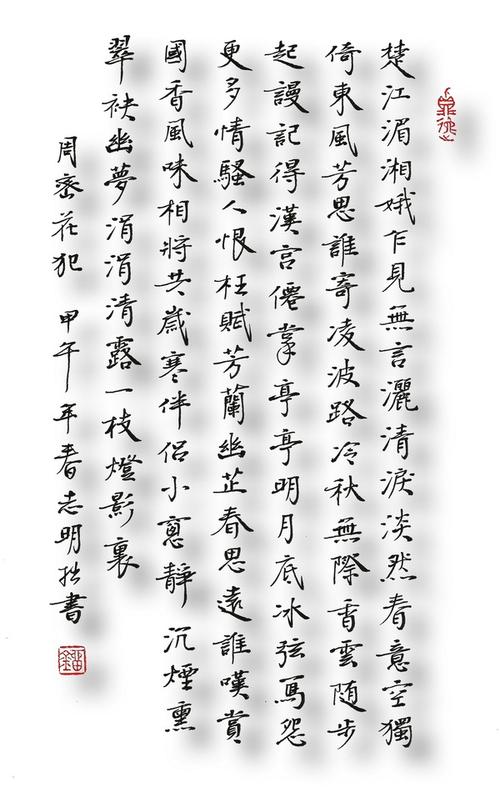 楚江湄湘娥乍見無言灑清淚淡然春意空獨
倚東風芳思誰寄凌波路冷秋無際香雲随步
起謾記得漢宮僊掌亭亭明月底冰弦寫怨
更多情騷人恨枉賦芳蘭幽芷春思遠誰嘆賞
國香風味相將共歲寒伴侶小窻靜沉煙熏
翠袂幽夢涓涓清露一枝燈影裏
周密花犯 甲午年春志明拙書